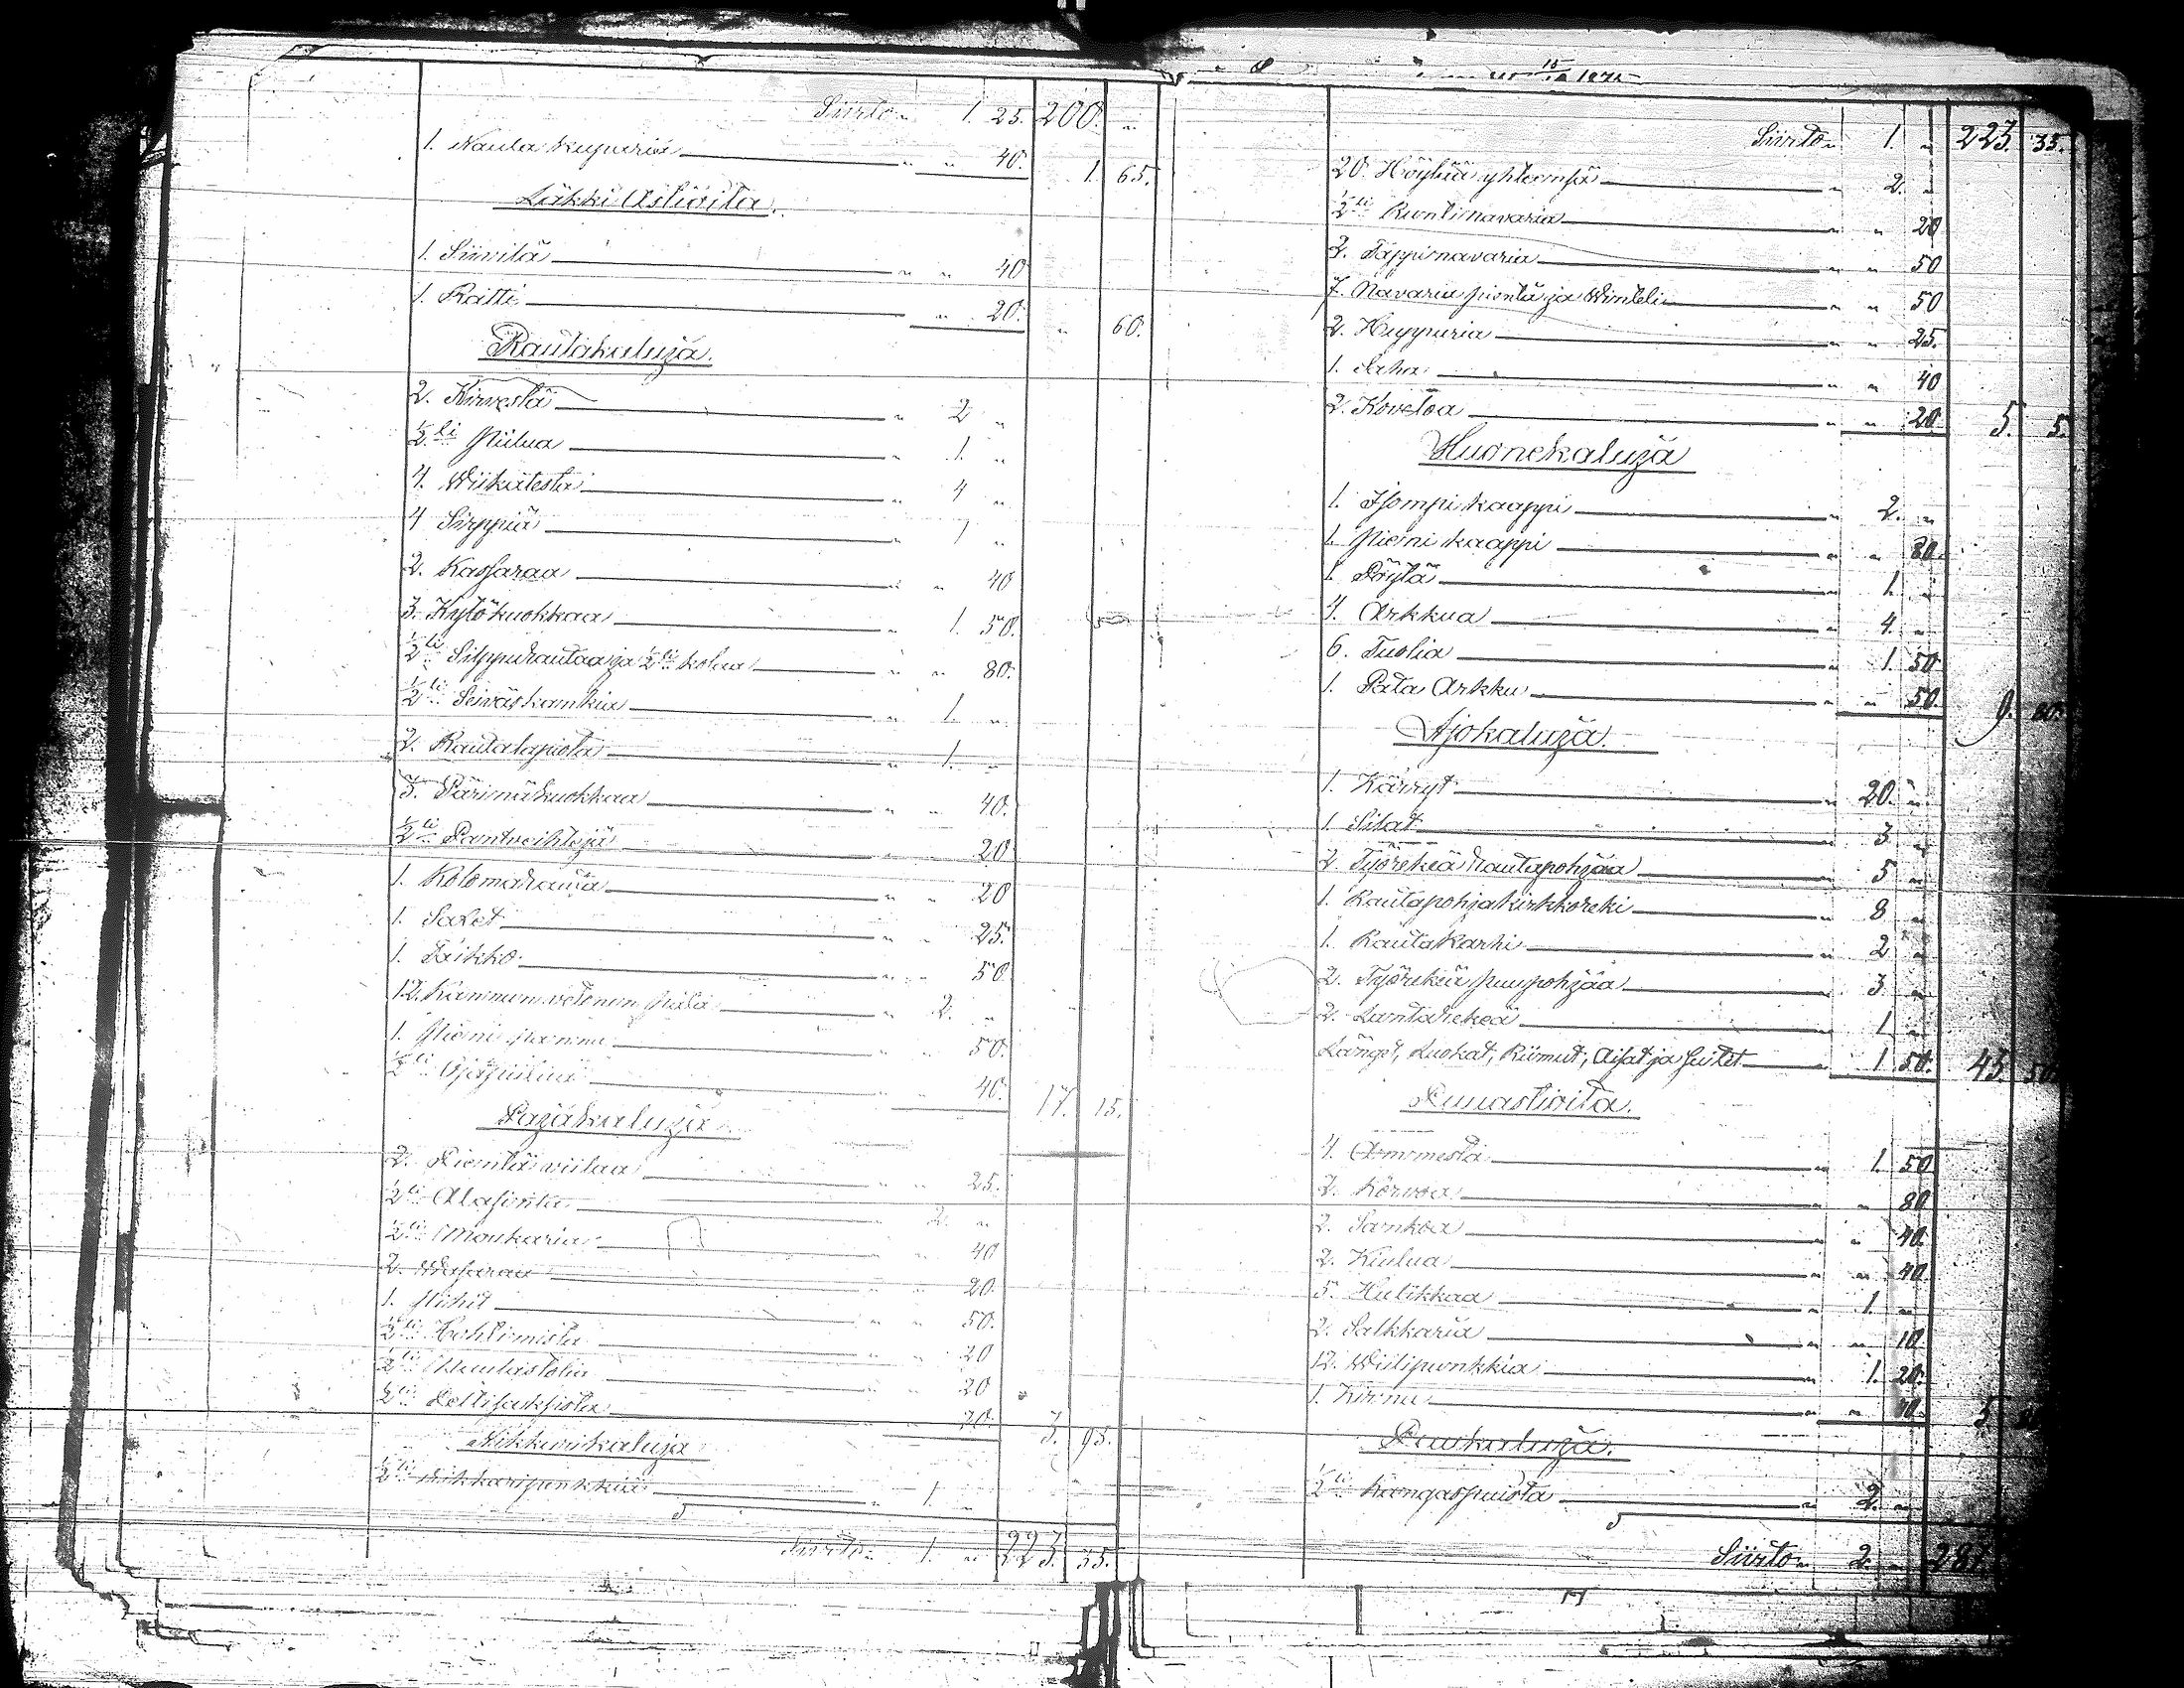 Siirto „ 1. 25. 200. „
1. Naula kupuria „ „ 40. 1. 65.
Läkki Astioita.
1. Siivilä „ „ 40
1. Tratti „ 20. „ 60.
Rautakaluja.
2. Kirvestä „ 2 „
½ li Piilua „ 1. „
4. Wiikatesta „ 4 „
4 Sirppiä „ 1 „
2. Kassaraa „ „ 40
3. Kytökuokkaa „ 1. 50.
½ li Silppurautaa ja ½ li kolaa „ „ 80.
½ li Seiväskankia „ 1. „
2. Rautalapiota „ 1. „
3. Pärinäkuokkaa „ „ 40.
½ li Pantveihtejä „ „ 20
1. Kolomarauta „ „ 20
1. Saxet „ „ 25.
1. Täikkö „ „ 50
12. Kannun vetonen Pata „ 2. „
1. Pieni Pannu „ „ 50.
½ li Ojapiilua „ „ 40. 17. 15.
Pajakaluja
2. Pientä viilaa „ „ 25.
½ li Alasinta „ 2. „
½ li Moukaria „ „ 40
2. Wasaraa „ „ 20.
1. Pihit „ „ 50.
½ li „ „ 20
½ li „ „ 20
½ li „ „ 20. 3. 95.
Nikkarikaluja
½ li Nikkaripenkkiä „ 1. „
Siirto „ 1. „ 223. 35.
15 1875
Siirto „ 1. „ 223. 35.
20. Höylää yhteensä „ 2. „
½ li Runtinavaria „ „ 20
2. Tappinavaria „ „ 50
7. Navaria pientä ja Wintili „ „ 50
2. Huppuria „ „ 25.
1. Saha „ „ 40
2. Kovetoa „ „ 20. 5. 5.
Huonekaluja
1. Isompi kaappi „ 2. „
1. Pieni kaappi „ „ 80.
1. Pöytä „ 1. „
4. Arkkua „ 4. „
6. Tuolia „ 1. 50
1. Pata Arkku „ „ 50. 9. 80.
Ajokaluja.
1. Kärryt „ 20. „
1. Silat „ 3 „
2. Työrekeä Rautapohjaa „ 5 „
1. Rautapohja kirkkoreki „ 8 „
1. Rauta Karhi „ 2 „
2. Työrekeä puupohjaa „ 3 „
2. Lantarekeä „ 1 „
Länget, Luokat, Riimut, Aisat ja Suitet „ 1. 50. 45. 50.
Puuastioita.
4. Ammesta „ 1. 50
2. Korvoa „ „ 80
2. Sankoa „ „ 40.
2. Kiulua „ „ 40.
5. Hulikkaa „ 1 „
2. Salkkaria „ „ 10
12. Wiilipunkkia „ 1. 20.
1. Kirnu „ „ 10. 5
Puukaluja.
½ li Kangaspuista „ 2. „
Siirto „ 2. „ 287.